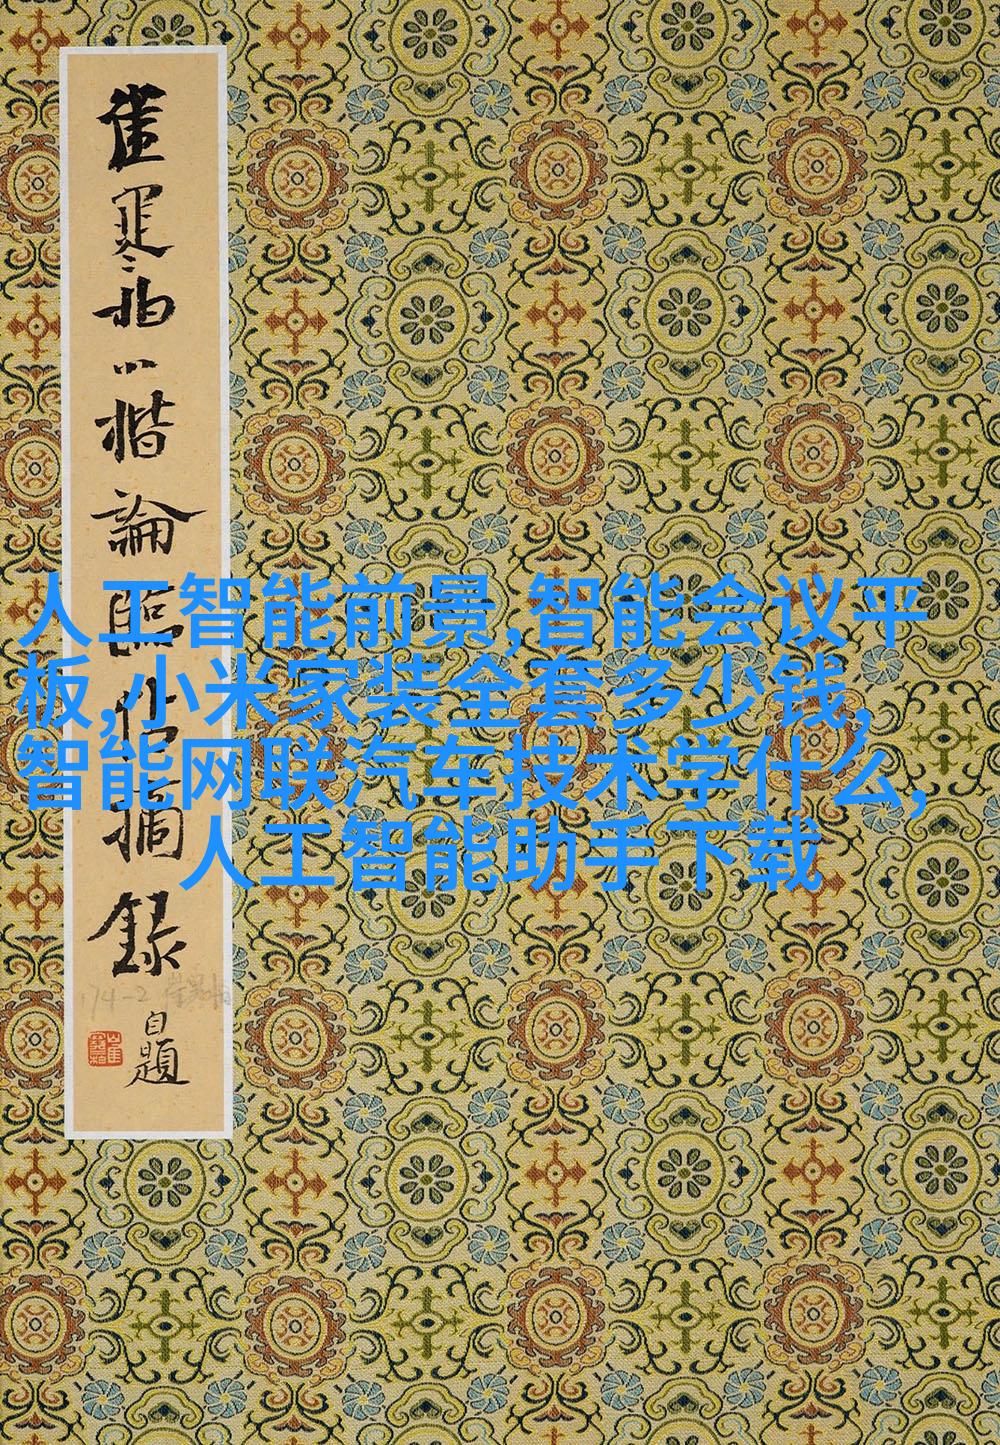 崔寒柏小楷論臨帖摘録
自題
人工智能前景,智能会议平
板,小米家装全套多少钱,
智能网联汽车技术学什么,
人工智能助手下载
174-2